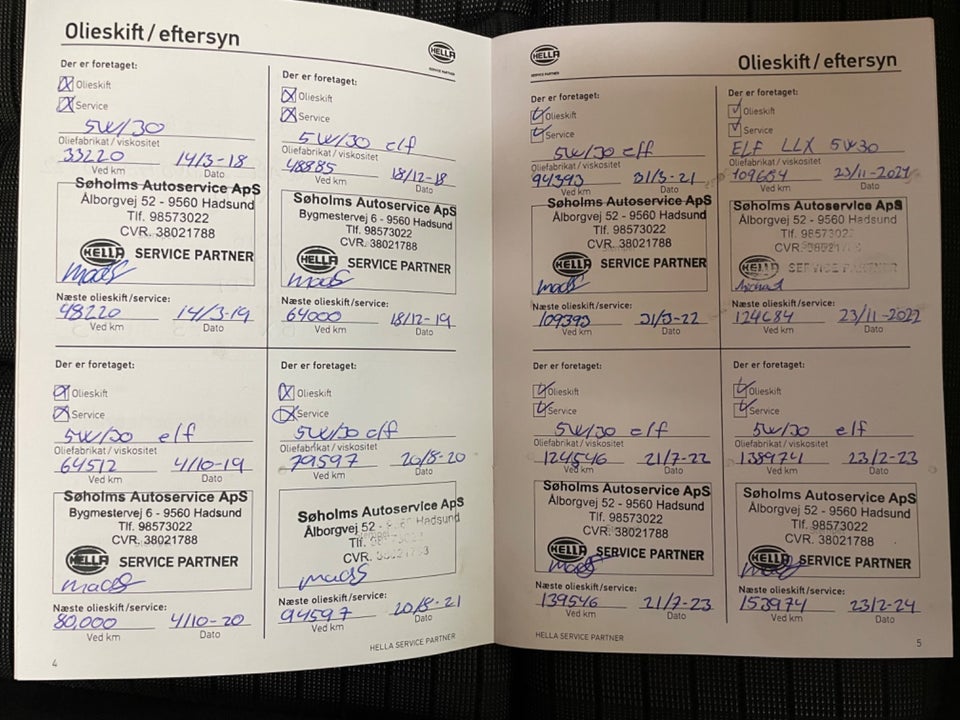 Olieskift/eftersyn
HELLA
SERVICE PARTNER
Der er foretaget:
Olieskift
Service
5W/30
Oliefabrikat/viskositet
33220 14/3-18
Ved km Dato
Søholms Autoservice ApS
Ålborgvej 52 - 9560 Hadsund
Tlf. 98573022
CVR. 38021788
HELLA SERVICE PARTNER
Mads
Næste olieskift/service:
48220 14/3-19
Ved km Dato
Der er foretaget:
Olieskift
Service
5W/30 elf
Oliefabrikat/viskositet
48885 18/12-18
Ved km Dato
Søholms Autoservice ApS
Bygmestervej 6 - 9560 Hadsund
Tlf. 98573022
CVR. 38021788
HELLA SERVICE PARTNER
Mads
Næste olieskift/service:
64000 18/12-19
Ved km Dato
Der er foretaget:
Olieskift
Service
5W/30 elf
Oliefabrikat/viskositet
64512 4/10-19
Ved km Dato
Søholms Autoservice ApS
Bygmestervej 6 - 9560 Hadsund
Tlf. 98573022
CVR. 38021788
HELLA SERVICE PARTNER
Mads
Næste olieskift/service:
80,000 4/10-20
Ved km Dato
Der er foretaget:
Olieskift
Service
5W/30 elf
Oliefabrikat/viskositet
79597 20/8-20
Ved km Dato
Søholms Autoservice ApS
Ålborgvej 52 - 9560 Hadsund
Tlf.
CVR.
Mads
Næste olieskift/service:
94597 20/8-21
Ved km Dato
4
HELLA SERVICE PARTNER
HELLA
SERVICE PARTNER
Olieskift/eftersyn
Der er foretaget:
Olieskift
Service
5W/30 elf
Oliefabrikat/viskositet
94393 31/3-21
Ved km Dato
Søholms Autoservice ApS
Ålborgvej 52 - 9560 Hadsund
Tlf. 98573022
CVR. 38021788
HELLA SERVICE PARTNER
Mads
Næste olieskift/service:
109393 31/3-22
Ved km Dato
Der er foretaget:
Olieskift
Service
ELF LLX 5W30
Oliefabrikat/viskositet
109684 23/11-2021
Ved km Dato
Søholms Autoservice ApS
Ålborgvej 52 - 9560 Hadsund
Tlf. 98573022
CVR.
HELLA SERVICE PARTNER
Næste olieskift/service:
124684 23/11-2022
Ved km Dato
Der er foretaget:
Olieskift
Service
5W/30 elf
Oliefabrikat/viskositet
124546 21/7-22
Ved km Dato
Søholms Autoservice ApS
Ålborgvej 52 - 9560 Hadsund
Tlf. 98573022
CVR. 38021788
HELLA SERVICE PARTNER
Mads
Næste olieskift/service:
139546 21/7-23
Ved km Dato
Der er foretaget:
Olieskift
Service
5W/30 elf
Oliefabrikat/viskositet
138974 23/2-23
Ved km Dato
Søholms Autoservice ApS
Ålborgvej 52 - 9560 Hadsund
Tlf. 98573022
CVR. 38021788
HELLA SERVICE PARTNER
Mads
Næste olieskift/service:
153974 23/2-24
Ved km Dato
HELLA SERVICE PARTNER
5